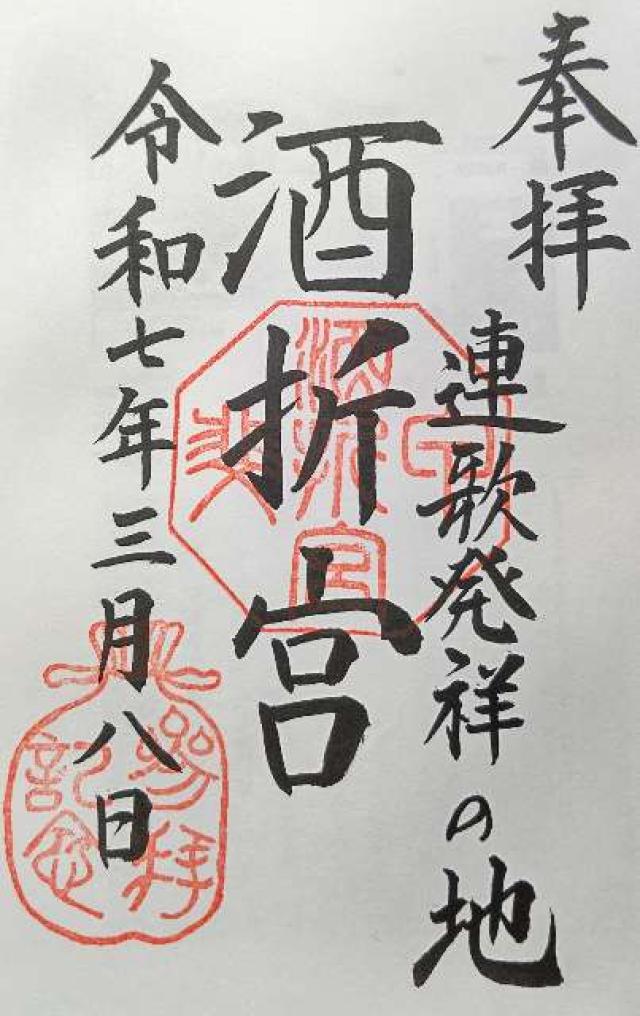 奉拝
連歌発祥の地
酒折宮
令和七年三月八日
甲斐
酒折宮
参拝
記念